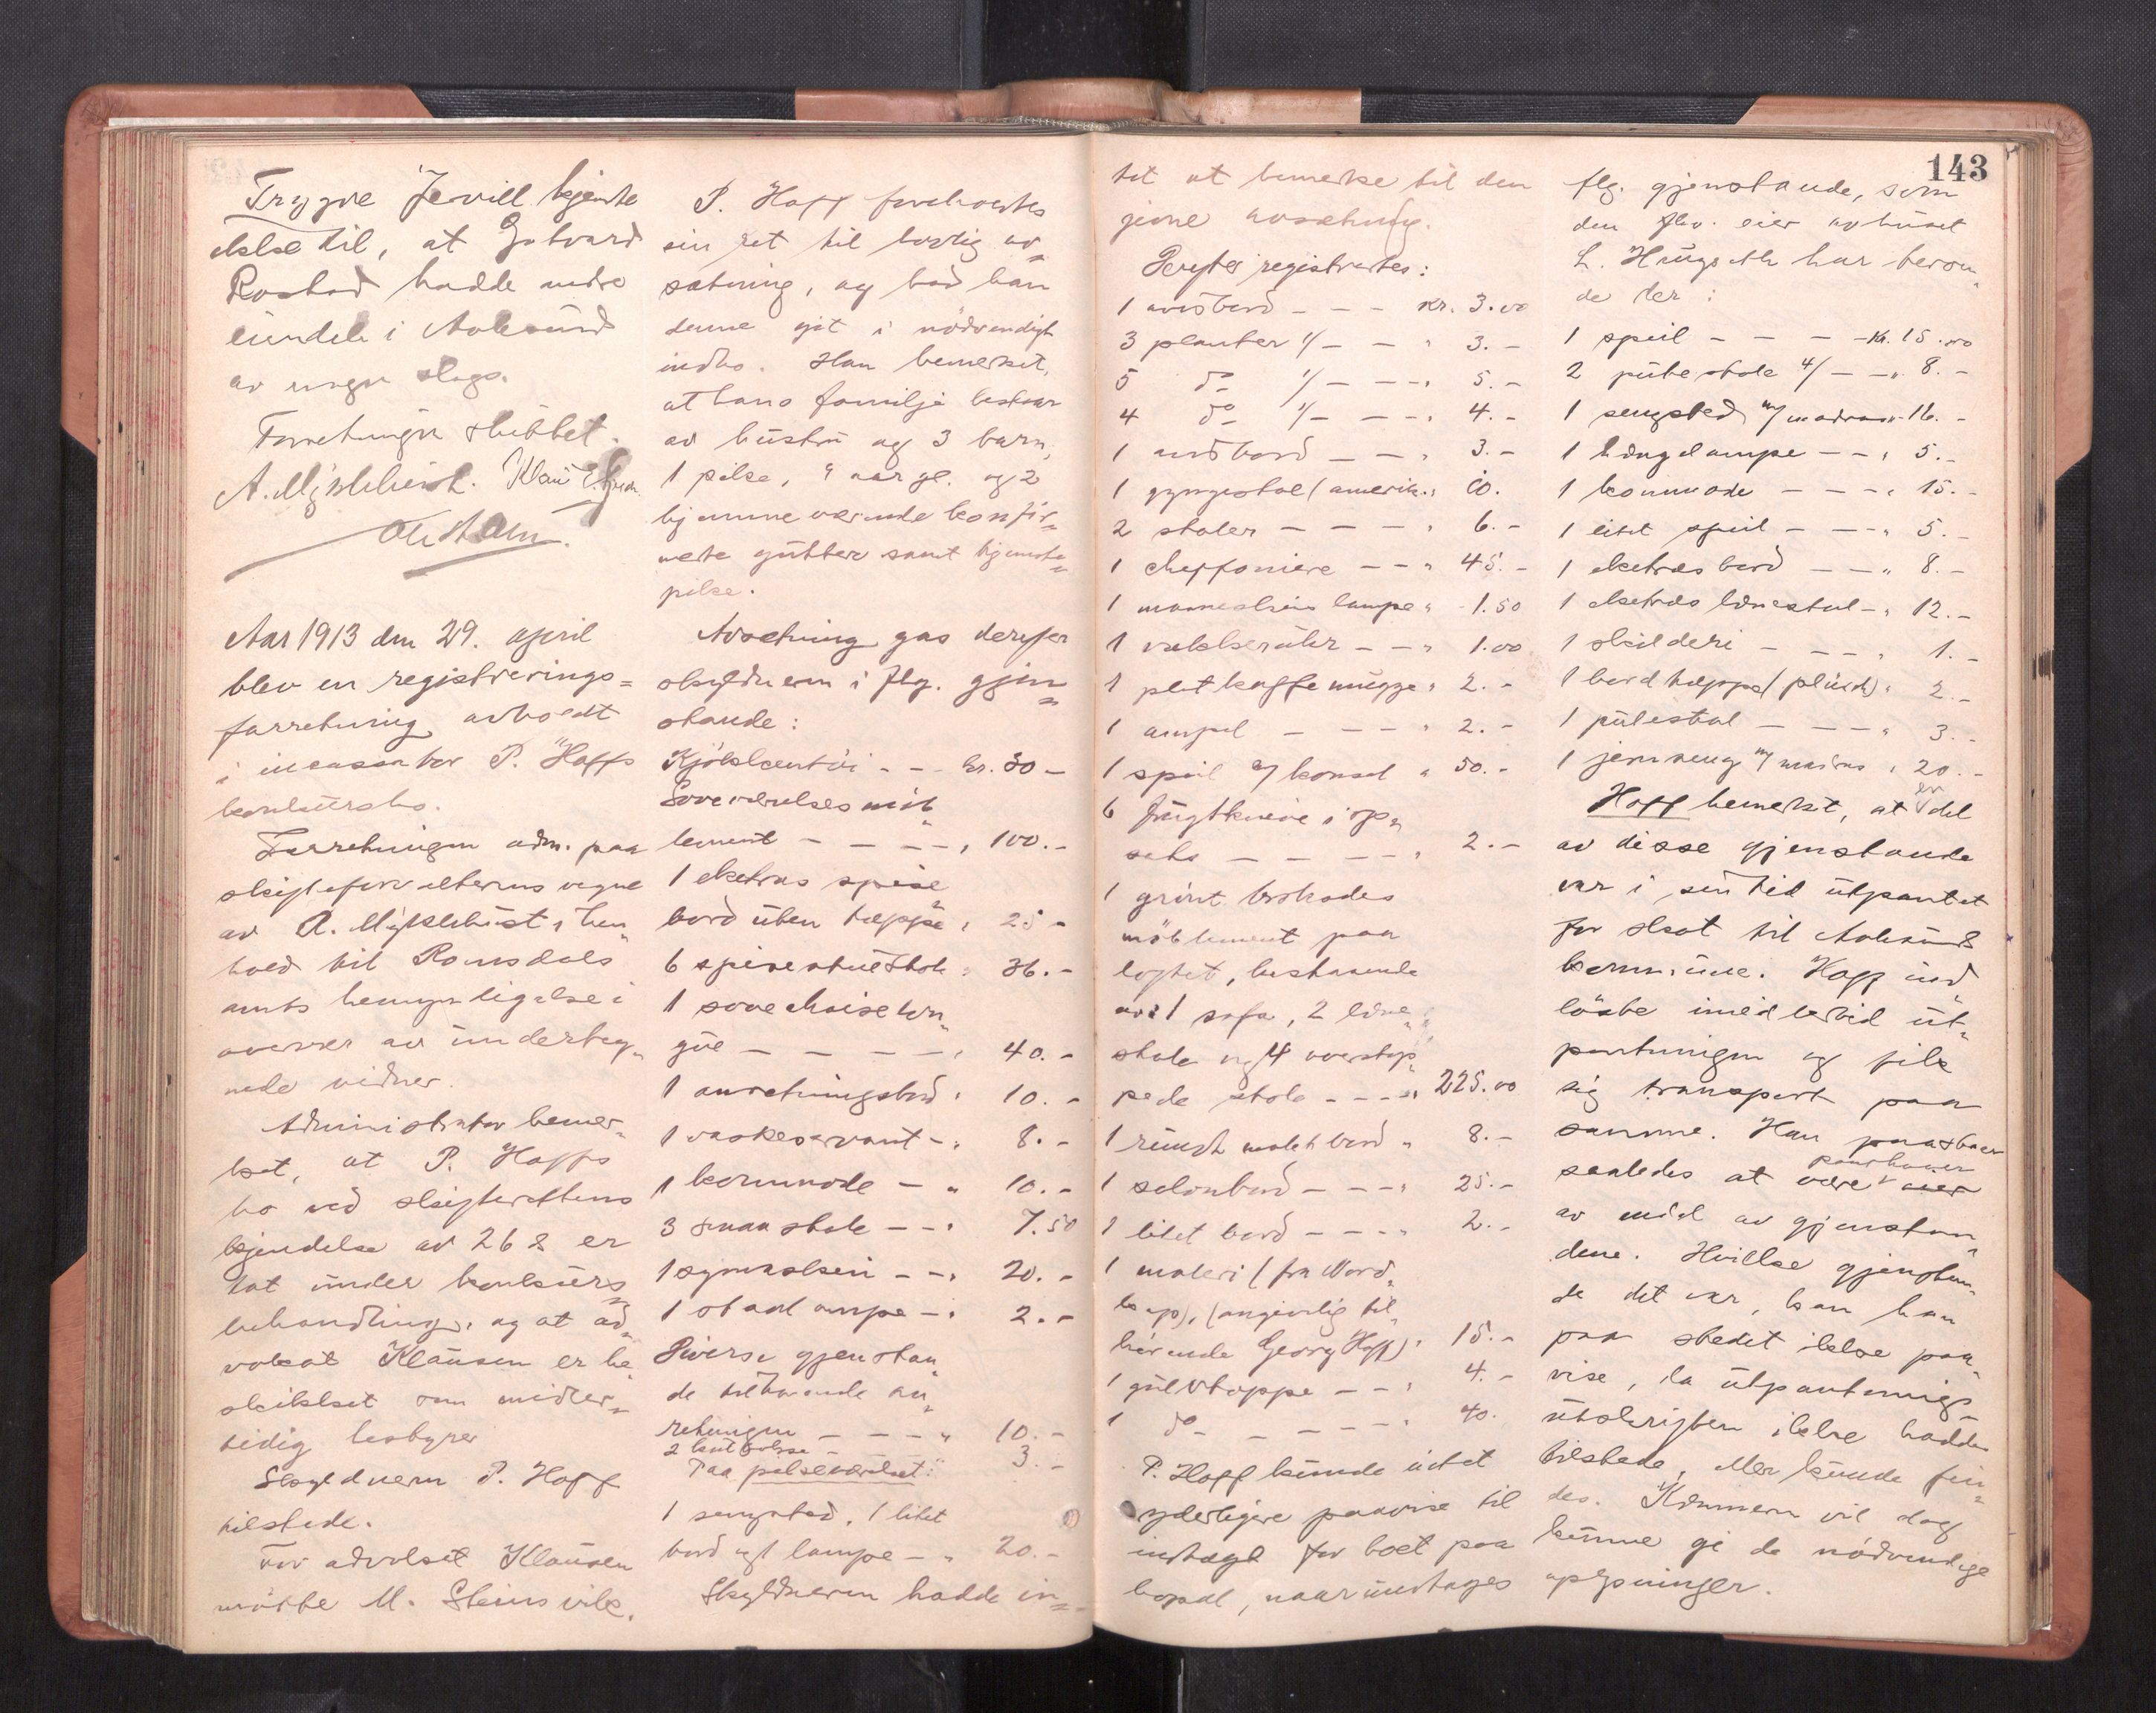 Trygve Jervell kjendte
delse til, at Gotvard
Rostad hadde andre
eiendele i Aalesund
av nogen slags.
Forretningen sluttet.
A. Myklebust.
Aar 1913 den 29. april
blev en registrerings=
forretning avholdt
i incassator P. Hoffs
konkursbo.
Forretningen adm. paa
skifteforvalterens vegne
av A. Myklebust i hen„
hold til Romsdals
amts bemyndigelse i
overvær av underteg„
nede vidner.
Administrator bemer„
ket, at P. Hoffs
bo ved skifterettens
kjendelse av 26 ds er
tat under konkurs„
behandling, og at ad„
vokat Klausen er be„
skikket som midler„
tidig bestyrer
Skyldneren P. Hoff
tilstede.
For advokat Klausen
møtte M. Steinsvik.
P. Hoff forbeholdtes
sin ret til lovlig av„
sætning, og bad han
denne git i nödvendigt
indbo. Han bemerket,
at hans familje bestaar
av hustru og 3 barn,
1 pike, 9 aar gl. og 2
hjemmeværende konfir„
merte gutter samt tjeneste„
pike.
Avsetning gas derefter
skyldneren i flg. gjen„
stande:
Kjökkentöi - - kr. 30 -
Soveværelses möb„
lement - - - - „ 100.-
1 eketræs spise
bord uten tæppe „ 25 -
6 spisestuestole „ 36.-
1 sove chaiselon„
gue - - - - - „ 40.-
1 anretningsbord „ 10.-
1 vaskeservant - „ 8.-
1 kommode - „ 10.-
3 smaa stole - - „ 7.50
1 symaskin - - „ 20.-
1 staalampe - „ 2.-
Diverse gjenstan„
de tilhørende an„
retningen - - - „ 10.-
3.-
Paa pikeværelset:
1 sengsted, 1 litet
bord og 1 lampe - „ 20.-
Skyldneren hadde in„
143
tet at bemerke til den
givne avsætning.
Derefter registrertes:
1 avisbord - - - kr. 3.00
3 planter 1/- - - „ 3.-
5 do 1/- - - „ 5.-
4 do 1/- - - „ 4.-
1 avisbord - - „ 3.-
1 gyngestol (amerik. „ 10.
2 stoler - - - - „ 6.-
1 cheffoniere - - „ 45.-
1 maaneskins lampe „ 1.50
1 vækkeruhr - - „ 1.00
1 plet kaffemugge „ 2.-
1 ampel - - - - „ 2.-
1 speil m/ konsol „ 50.-
6 frugtkniver i op„
sats - - - - „ 2.-
1 grönt brokades
möblement paa
loftet, bestaaende
av 1 sofa, 2 læne„
stole og 4 overstop„
pede stole - - - „ 225.00
1 rundt malet bord „ 8.-
1 salonbord - - - „ 25.-
1 litet bord - - - „ 2.-
1 maleri (fra Nord„
kap), (angivelig til„
hørende Georg Hoff) „ 15.-
1 gulvtæppe - - „ 4.-
1 do - - - - „ 40.
P. Hoff kunde intet
yderligere paavise til
indtægt for boet paa
bopæl, naar undtages
flg. gjenstande, som
den flv. eier av huset
L. Haugseth har beroen„
de der:
1 speil - - - - Kr. 15.00
2 putestole 4/- - „ 8.-
1 sengsted m/ madras „ 16.-
1 hængelampe - - „ 5.-
1 kommode - - - „ 15.-
1 litet speil - - - „ 5.-
1 eketræs bord - - „ 8.-
1 eketræs lænestol - „ 12.-
1 skilderi - - - - „ 1.-
1 bordtæppe (plüsch) „ 2.-
1 pulestol - - - - „ 3.-
1 jernseng m/ madras „ 20.-
Hoff bemerket, at en del
av disse gjenstande
var i sin tid utpantet
for skat til Aalesunds
kommune. Hoff ind„
löste imidlertid ut„
pantningen og fik
sig transport paa
samme. Han paastaar
saaledes at være panthaver
av endel av gjenstan„
dene. Hvilke gjenstan„
de det var, kan han
paa stedet ikke paa„
vise, da utpantnings„
utskriften ikke hadde
tilstede, eller kunde fin„
des. Kæmneren vil dog
kunne gi de nödvendige
oplysninger.